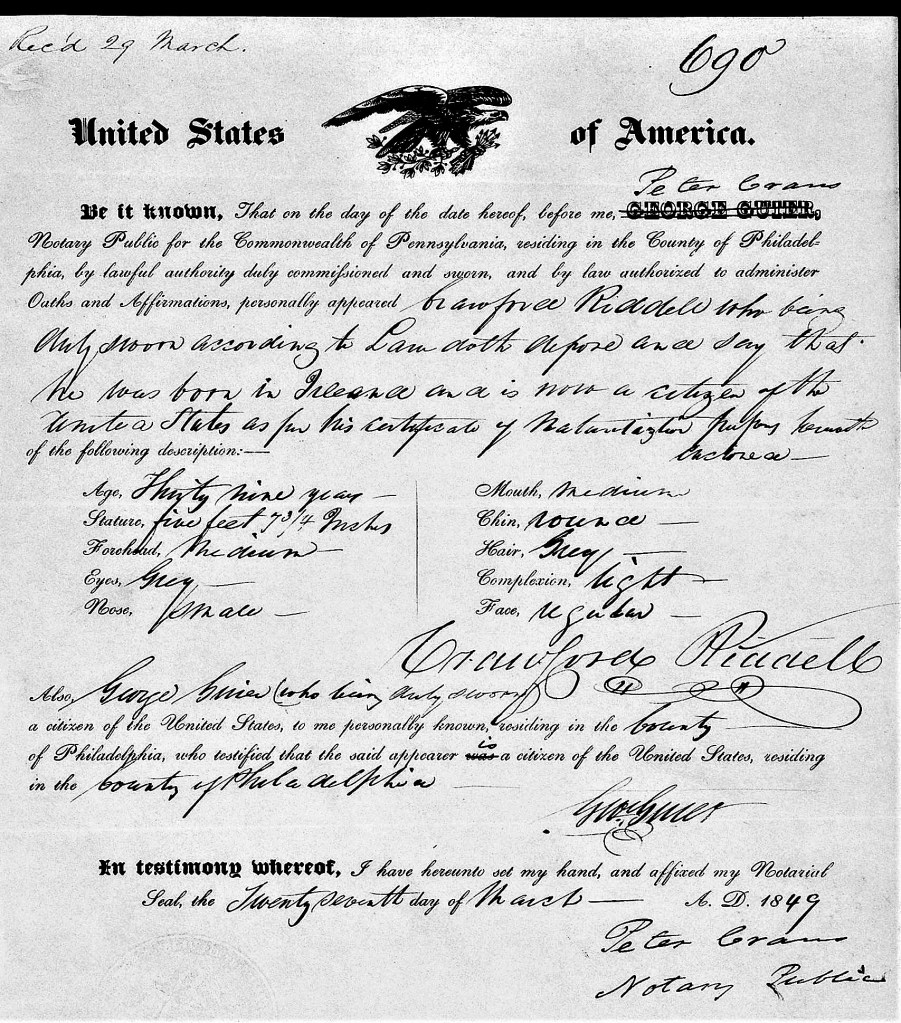 Rec'd 29 March.
690
United States of America.
Peter Crans
Be it known, That on the day of the date hereof, before me, GEORGE GUIER,
Notary Public for the Commonwealth of Pennsylvania, residing in the County of Philadel-
phia, by lawful authority duly commissioned and sworn, and by law authorized to administer
Oaths and Affirmations, personally appeared Crawford Riddell who being
duly sworn according to Law doth depose and say that
he was born in Ireland and is now a citizen of the
United States as per his certificate of Naturalization herewith
enclosed —
of the following description:—
Age, Thirty nine years —
Stature, five feet 7 3/4 Inches
Forehead, Medium —
Eyes, Grey —
Nose, small —
Mouth, medium
Chin, round —
Hair, Grey —
Complexion, light —
Face, regular —
Crawford Riddell
Also, George Guier (who being duly sworn)
a citizen of the United States, to me personally known, residing in the County
of Philadelphia, who testified that the said appearer was is a citizen of the United States, residing
in the County of Philadelphia —
Geo. Guier
In testimony whereof, I have hereunto set my hand, and affixed my Notarial
Seal, the Twenty seventh day of March — A. D. 1849
Peter Crans
Notary Public